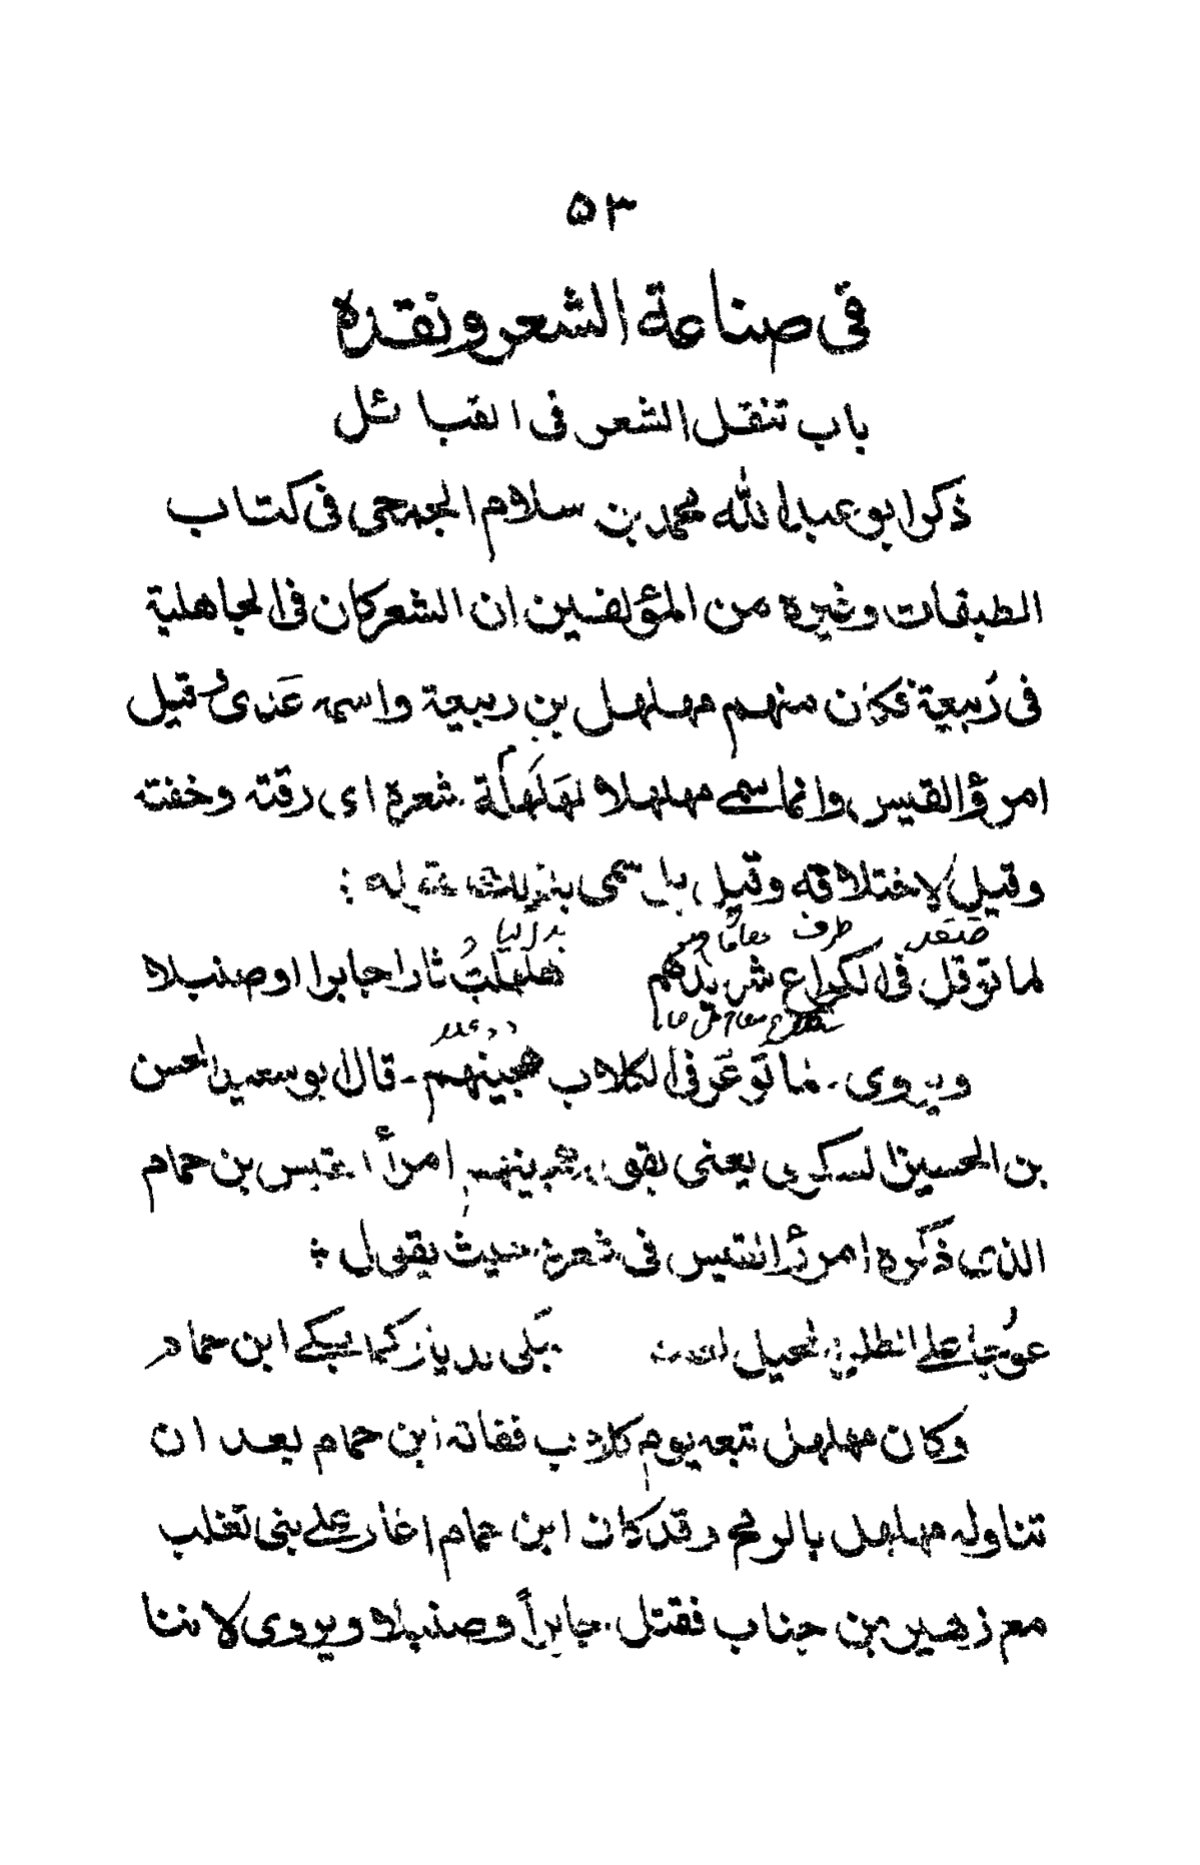 ٥٣
فى صناعة الشعر ونقده
باب تنقل الشعر فى القبائل
ذكر ابو عبد الله محمد بن سلام الجمحى فى كتاب
الطبقات وغيره من المؤلفين ان الشعر كان فى الجاهلية
فى ربيعة فكان منهم مهلهل بن ربيعة واسمه عَدى وقيل
امرؤ القيس وانما سمے مهلهلا لهَلهَلة شعره اى رقته وخفته
وقيل لاختلافه وقيل بل سمى بذلك لقوله :
لما توقل فى الكراع شريدهم هلهلتُ ثارا جابرا او صنبلا
ويروى - لما توعَّر فى الكلاب هجينهم - قال ابو سعيد الحسن
بن الحسين السكرى يعنى بقوله هجينهم امرأ القيس بن حمام
الذى ذكره امرؤ القيس فى شعره حيث يقول :
عوُجا على الطلل المحيل نبكى الديار كما بكے ابن حمام
وكان مهلهل تبعه يوم كلاب ففاته ابن حمام بعد ان
تناوله مهلهل بالرمح وقد كان ابن حمام اغار على بنى تغلب
مع زهير بن جناب فقتل جابراً وصنبلا ويروى لاننا